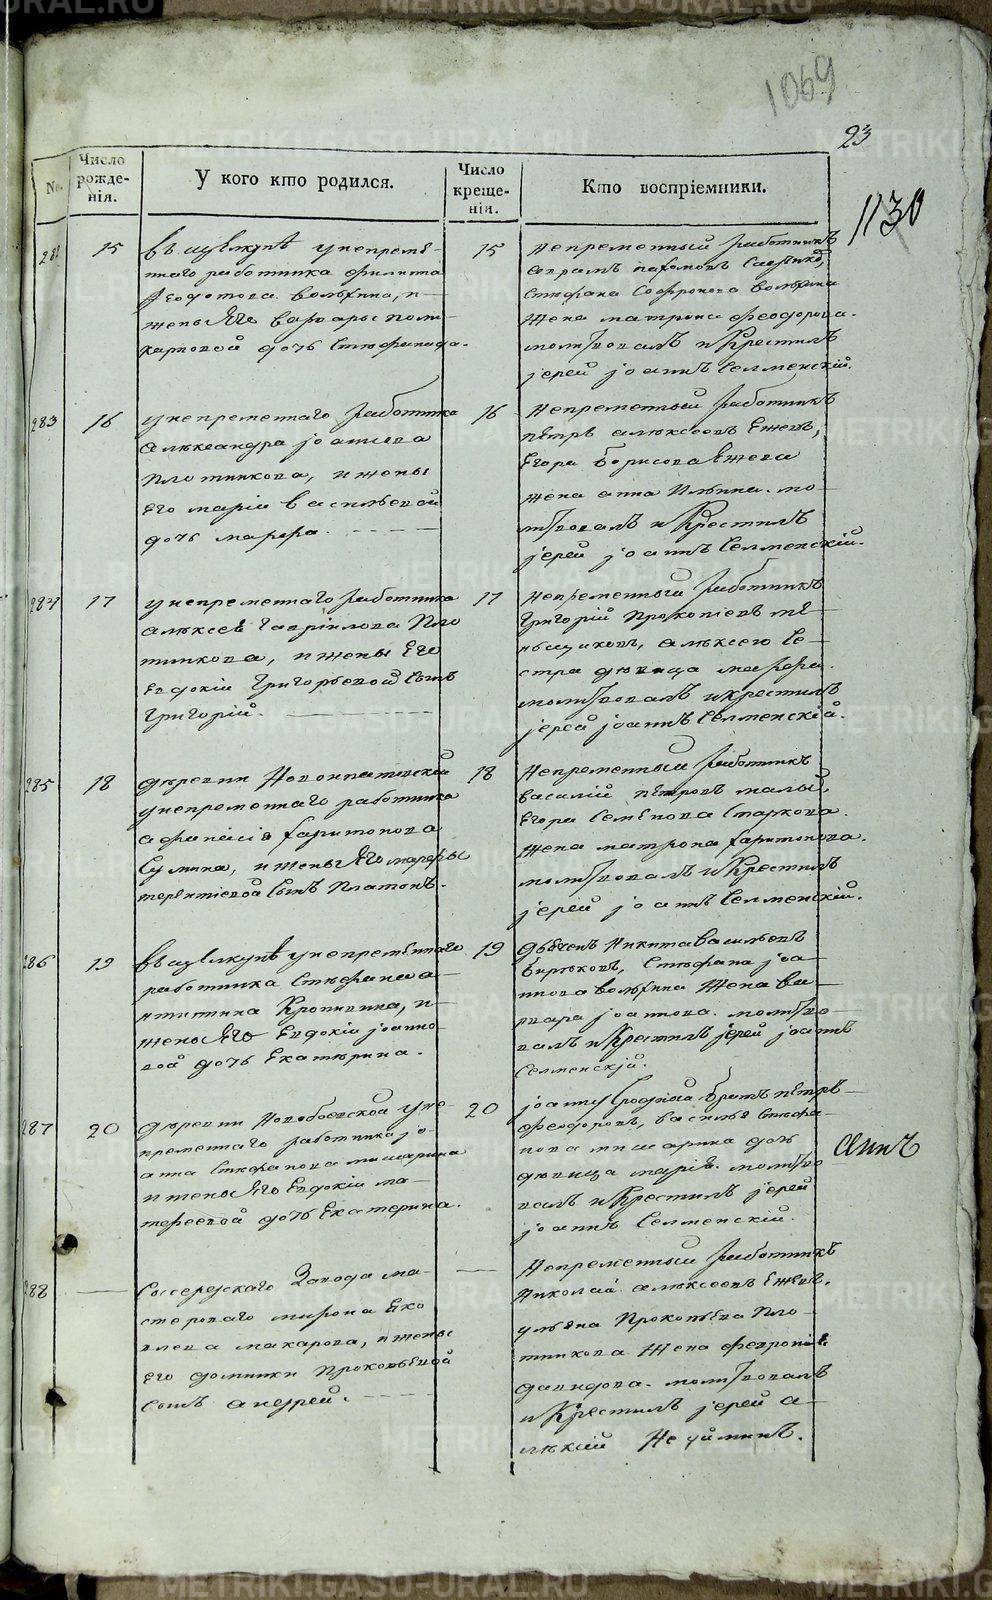 1069
23
1130
№.
Число рожде-нія.
У кого кто родился.
Число креще-нія.
Кто воспріемники.
15
въ у непремѣ-
ннаго работника филипа
Ѳеодотова вольхина, и
жены Его варвары поли-
карповой дочь Стефанида.
15
Непременный работникъ
аврамъ пахомовъ
Стефана Софронова вольхина
жена матрона феодорова.
молитвовалъ и Крестилъ
іерей іоаннъ Селменскій.
283
16
у непременнаго работника
александра іоаннова
плотникова, и жены
Его маріи васильевой
дочь марфа.
16
Непременный работникъ
петръ алексеевъ Ежевъ,
Егора борисова Ежева
жена анна Ильина. мо-
литвовалъ и Крестилъ
іерей іоаннъ Селменскій.
284
17
у непременнаго работника
алексея гавріилова Пло
тникова, и жены Его
Евдокіи Григорьевой Сынъ
Григорій.
17
непременный работникъ
Григорій Прокопіевъ ме
ньщиковъ, алексею Се-
стра девица марфа.
молитвовалъ и крестилъ
іерей іоаннъ Селменскій.
285
18
деревни Новоипатовской
у непременнаго работника
афанасія харитонова
Сулина, и жены Его марфы
терентіевой Сынъ Платонъ.
18
Непременный работникъ
василій петровъ малый,
Егора Семенова Старкова
жена матрона харитонова.
молитвовалъ и Крестилъ
іерей іоаннъ Селменскій.
286
19
въ у непременнаго
работника Стефана а-
нтипина Кропивина, и
жены Его Евдокіи іоанно-
вой дочь Екатерина.
19
Никита васильевъ
бирюковъ, Стефана іоа-
ннова вольхина жена ва-
рвара іоаннова. молитво
валъ и Крестилъ іерей іоаннъ
Селменскій.
287
20
деревни Новобоевской у не-
пременнаго работника іо-
анна Стефанова мишарина
и жены Его Евдокіи ма-
тфеевой дочь Екатерина.
20
іоанну Сродный братъ петръ
феодоровъ, василья Стефа-
нова мишарина дочь
девица марія. молитво
валъ и Крестилъ іерей
іоаннъ Селменскій.
288
Сысерскаго Завода ма-
стероваго мирона Яко
влева макарова, и жены
Его домники Прокопьевой
Сынъ андрей.
Непременный работникъ
Николай алексеевъ Ежевъ,
ульяна Прокопьева Пло-
тникова жена феврони
давидова. молитвовалъ
и Крестилъ іерей а-
лексій Неуйминъ.
METRIKI.GASO-URAL.RU